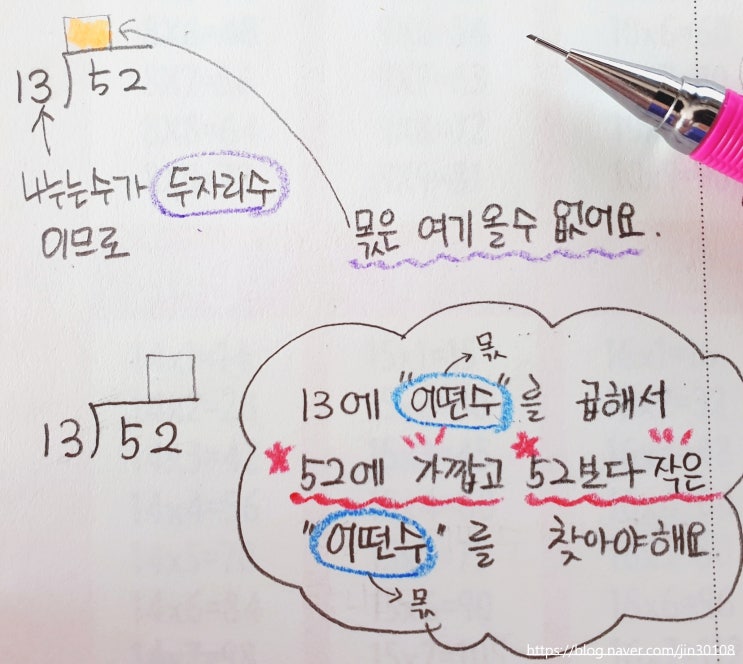 13)52
나누는수가 두자리수
이므로
몫은 여기 올수 없어요.
13)52
몫
13에 "어떤수"를 곱해서
52에 가깝고 52보다 작은
"어떤수"를 찾아야해요
몫
https://blog.naver.com/jin30108